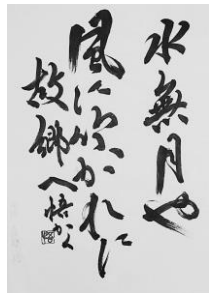 水無月や
風に吹かれに
故郷へ 悟かく